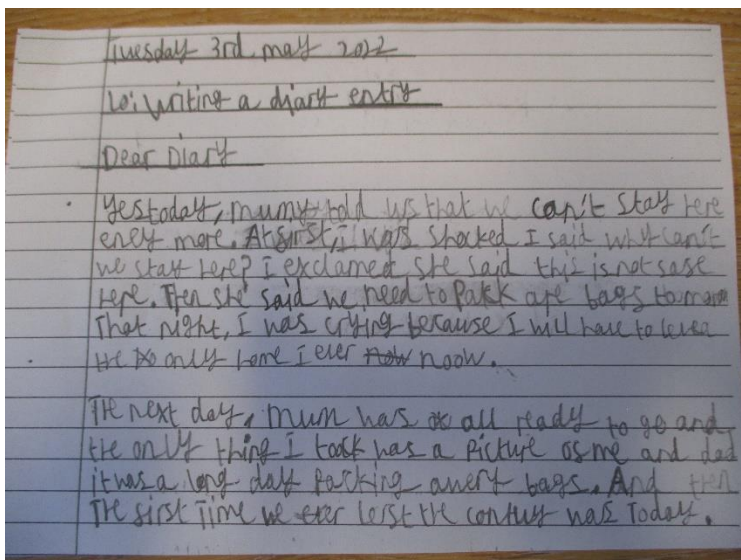 Tuesday 3rd may 2022
Lo: Writing a diary entry
Dear Diary
Yestoday, mumy told us that we can't stay here
eney more. At first, i was shocked I said why can't
we stay here? I exclamed she said this is not safe
here. Then she said we need to Pakk are bags
That night, I was crying because I will have to
the only home I ever now noow.
The next day, mum was all ready to go and
the only thing I took was a picture of me and dad
it was a long day packing bags. And then
The first Time we ever the was Today.